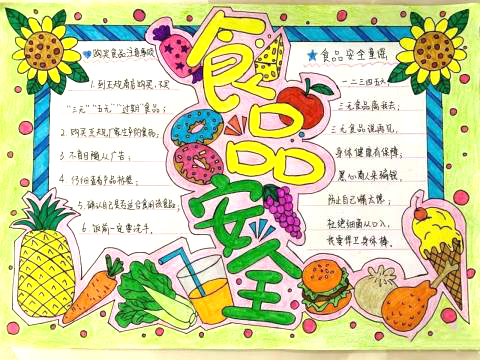 食品安全
购买食品注意事项
1. 到正规商店购买,不买
"三无""五无""过期"食品;
2. 购买正规厂家生产的食品;
3. 不盲目随从广告;
4. 仔细查看产品标签;
5. 确认自己是否适合食用该食品;
6. 饭前一定要洗手。
食品安全童谣
一二三四五六,
三无食品离我去;
三无食品说再见,
身体健康有保障;
黑心商人来骗钱,
防止自己嘴太馋,
杜绝细菌从口入,
我要捍卫身体棒。